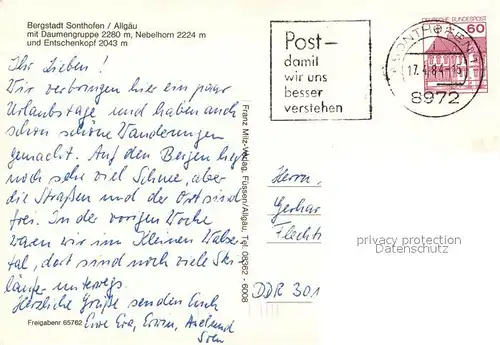 Bergstadt Sonthofen / Allgäu
mit Daumengruppe 2280 m, Nebelhorn 2224 m
und Entschenkopf 2043 m
Ihr Lieben!
Wir verbringen hier ein paar
Urlaubstage und haben auch
schon schöne Wanderungen
gemacht. Auf den Bergen liegt
noch sehr viel Schnee, aber
die Straßen und der Ort sind
frei. In der vorigen Woche
waren wir im Kleinen Walser-
tal, dort sind noch viele Ski-
läufer unterwegs.
Herzliche Grüße senden Euch
Eure Eva, Erwin, Axel und
Sven
Freigabenr 65762
Franz Milz-Verlag, Füssen/Allgäu, Tel. 08362 - 6008
Post-
damit
wir uns
besser
verstehen
SONTHOFEN 1
17.4.84-15
8972
DEUTSCHE BUNDESPOST
60
Herrn
Gerhar
Flechts
DDR 301
privater Ansichtskarten